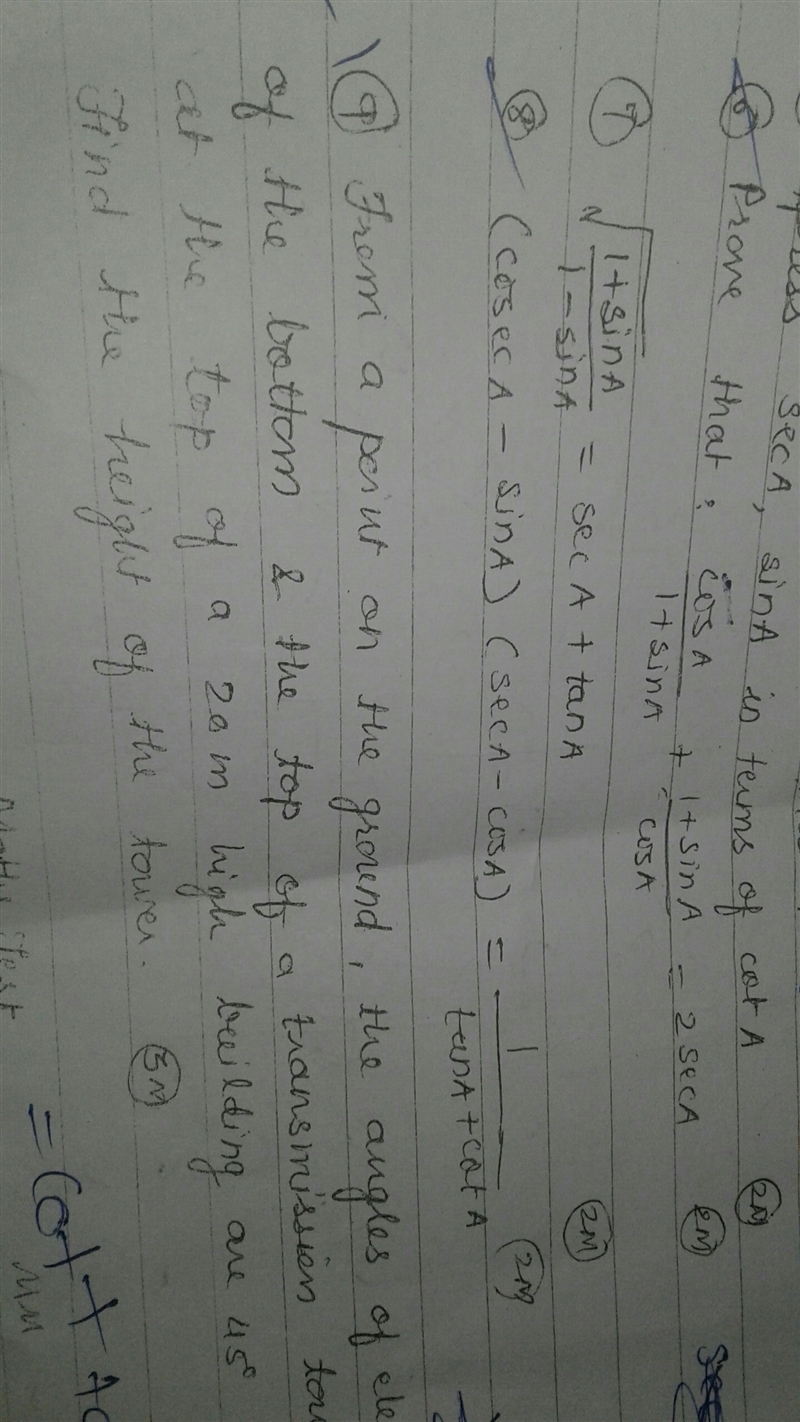 sec A, sin A in terms of cot A (2M)
(6) Prove that : cos A / 1 + sin A + 1 + sin A / cos A = 2 sec A (2M)
(7) √ 1 + sin A / 1 - sin A = sec A + tan A (2M)
(8) (cosec A - sin A) (sec A - cos A) = 1 / tan A + cot A (2M)
(9) From a point on the ground, the angles of ele
of the bottom & the top of a transmission tow
at the top of a 20 m high building are 45°
Find the height of the tower. (3M)
= Cot